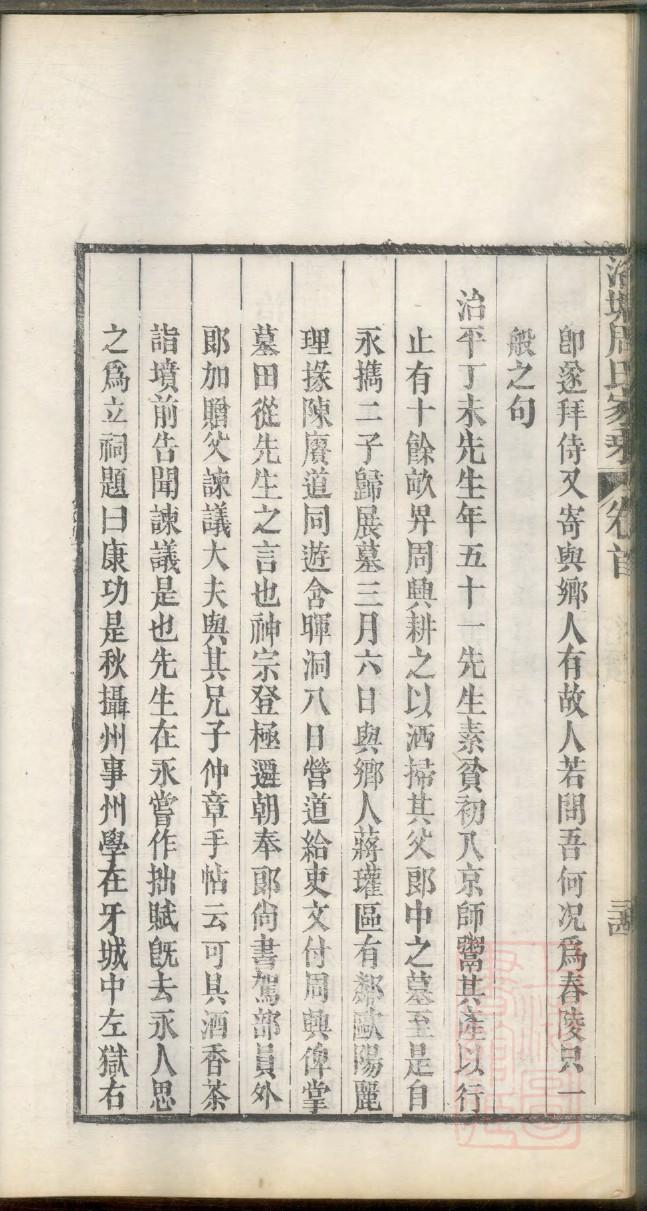 洛塘周氏家乘 卷首
三四
卽遂拜侍又寄與鄉人有故人若問吾何况爲舂陵只一
般之句
治平丁未先生年五十一先生素貧初入京師鬻其產以行
止有十餘畝畀周興耕之以洒掃其父郎中之墓至是自
永擕二子歸展墓三月六日與鄉人蔣瓘區有鄰歐陽麗
理掾陳賡道同遊含暉洞八日營道給吏文付周興俾掌
墓田從先生之言也神宗登極遷朝奉郎尙書駕部員外
郎加贈父諫議大夫與其兄子仲章手帖云可具酒香茶
詣墳前告聞諫議是也先生在永嘗作拙賦旣去永人思
之爲立祠題曰康功是秋攝州事州學在牙城中左獄右